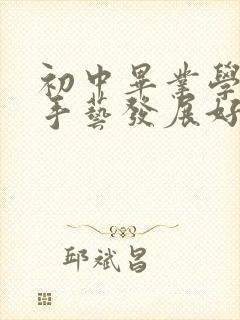 初中畢業學
手藝發展好
邱斌昌